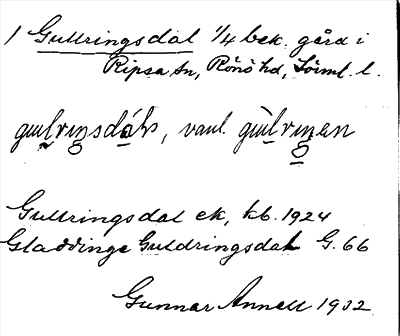 1 Gullringsdal 1/4 bek. gård i
Ripsa sn, Rönö hd, Sörml. l.
gul̥riŋsdáls, vanl. gùlriŋen
Gullringsdal ek, kb. 1924
Gladdinge Guldringsdal G. 66
Gunnar Annell 1932